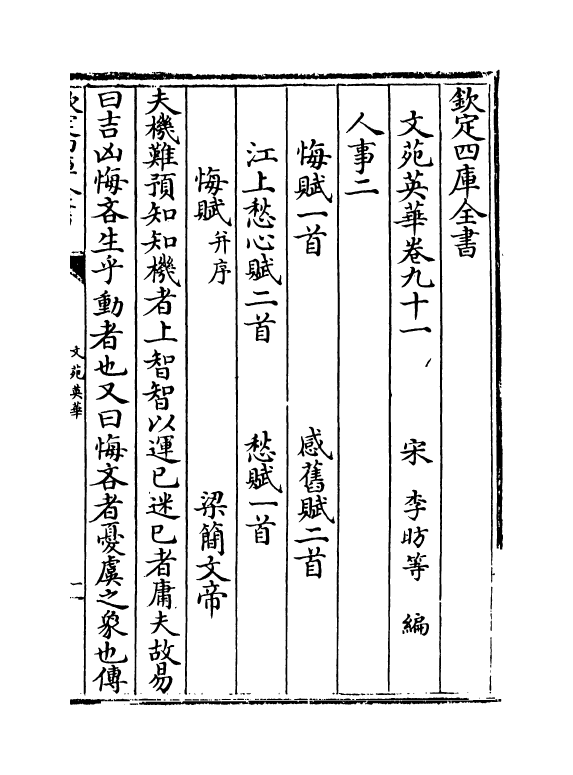 欽定四庫全書
文苑英華卷九十一 宋 李昉等 編
人事二
悔賦一首 感舊賦二首
江上愁心賦二首 愁賦一首
悔賦 并序 梁簡文帝
夫機難預知知機者上智智以運已迷已者庸夫故易
曰吉凶悔吝生乎動者也又曰悔吝者憂虞之象也傳
文苑英華